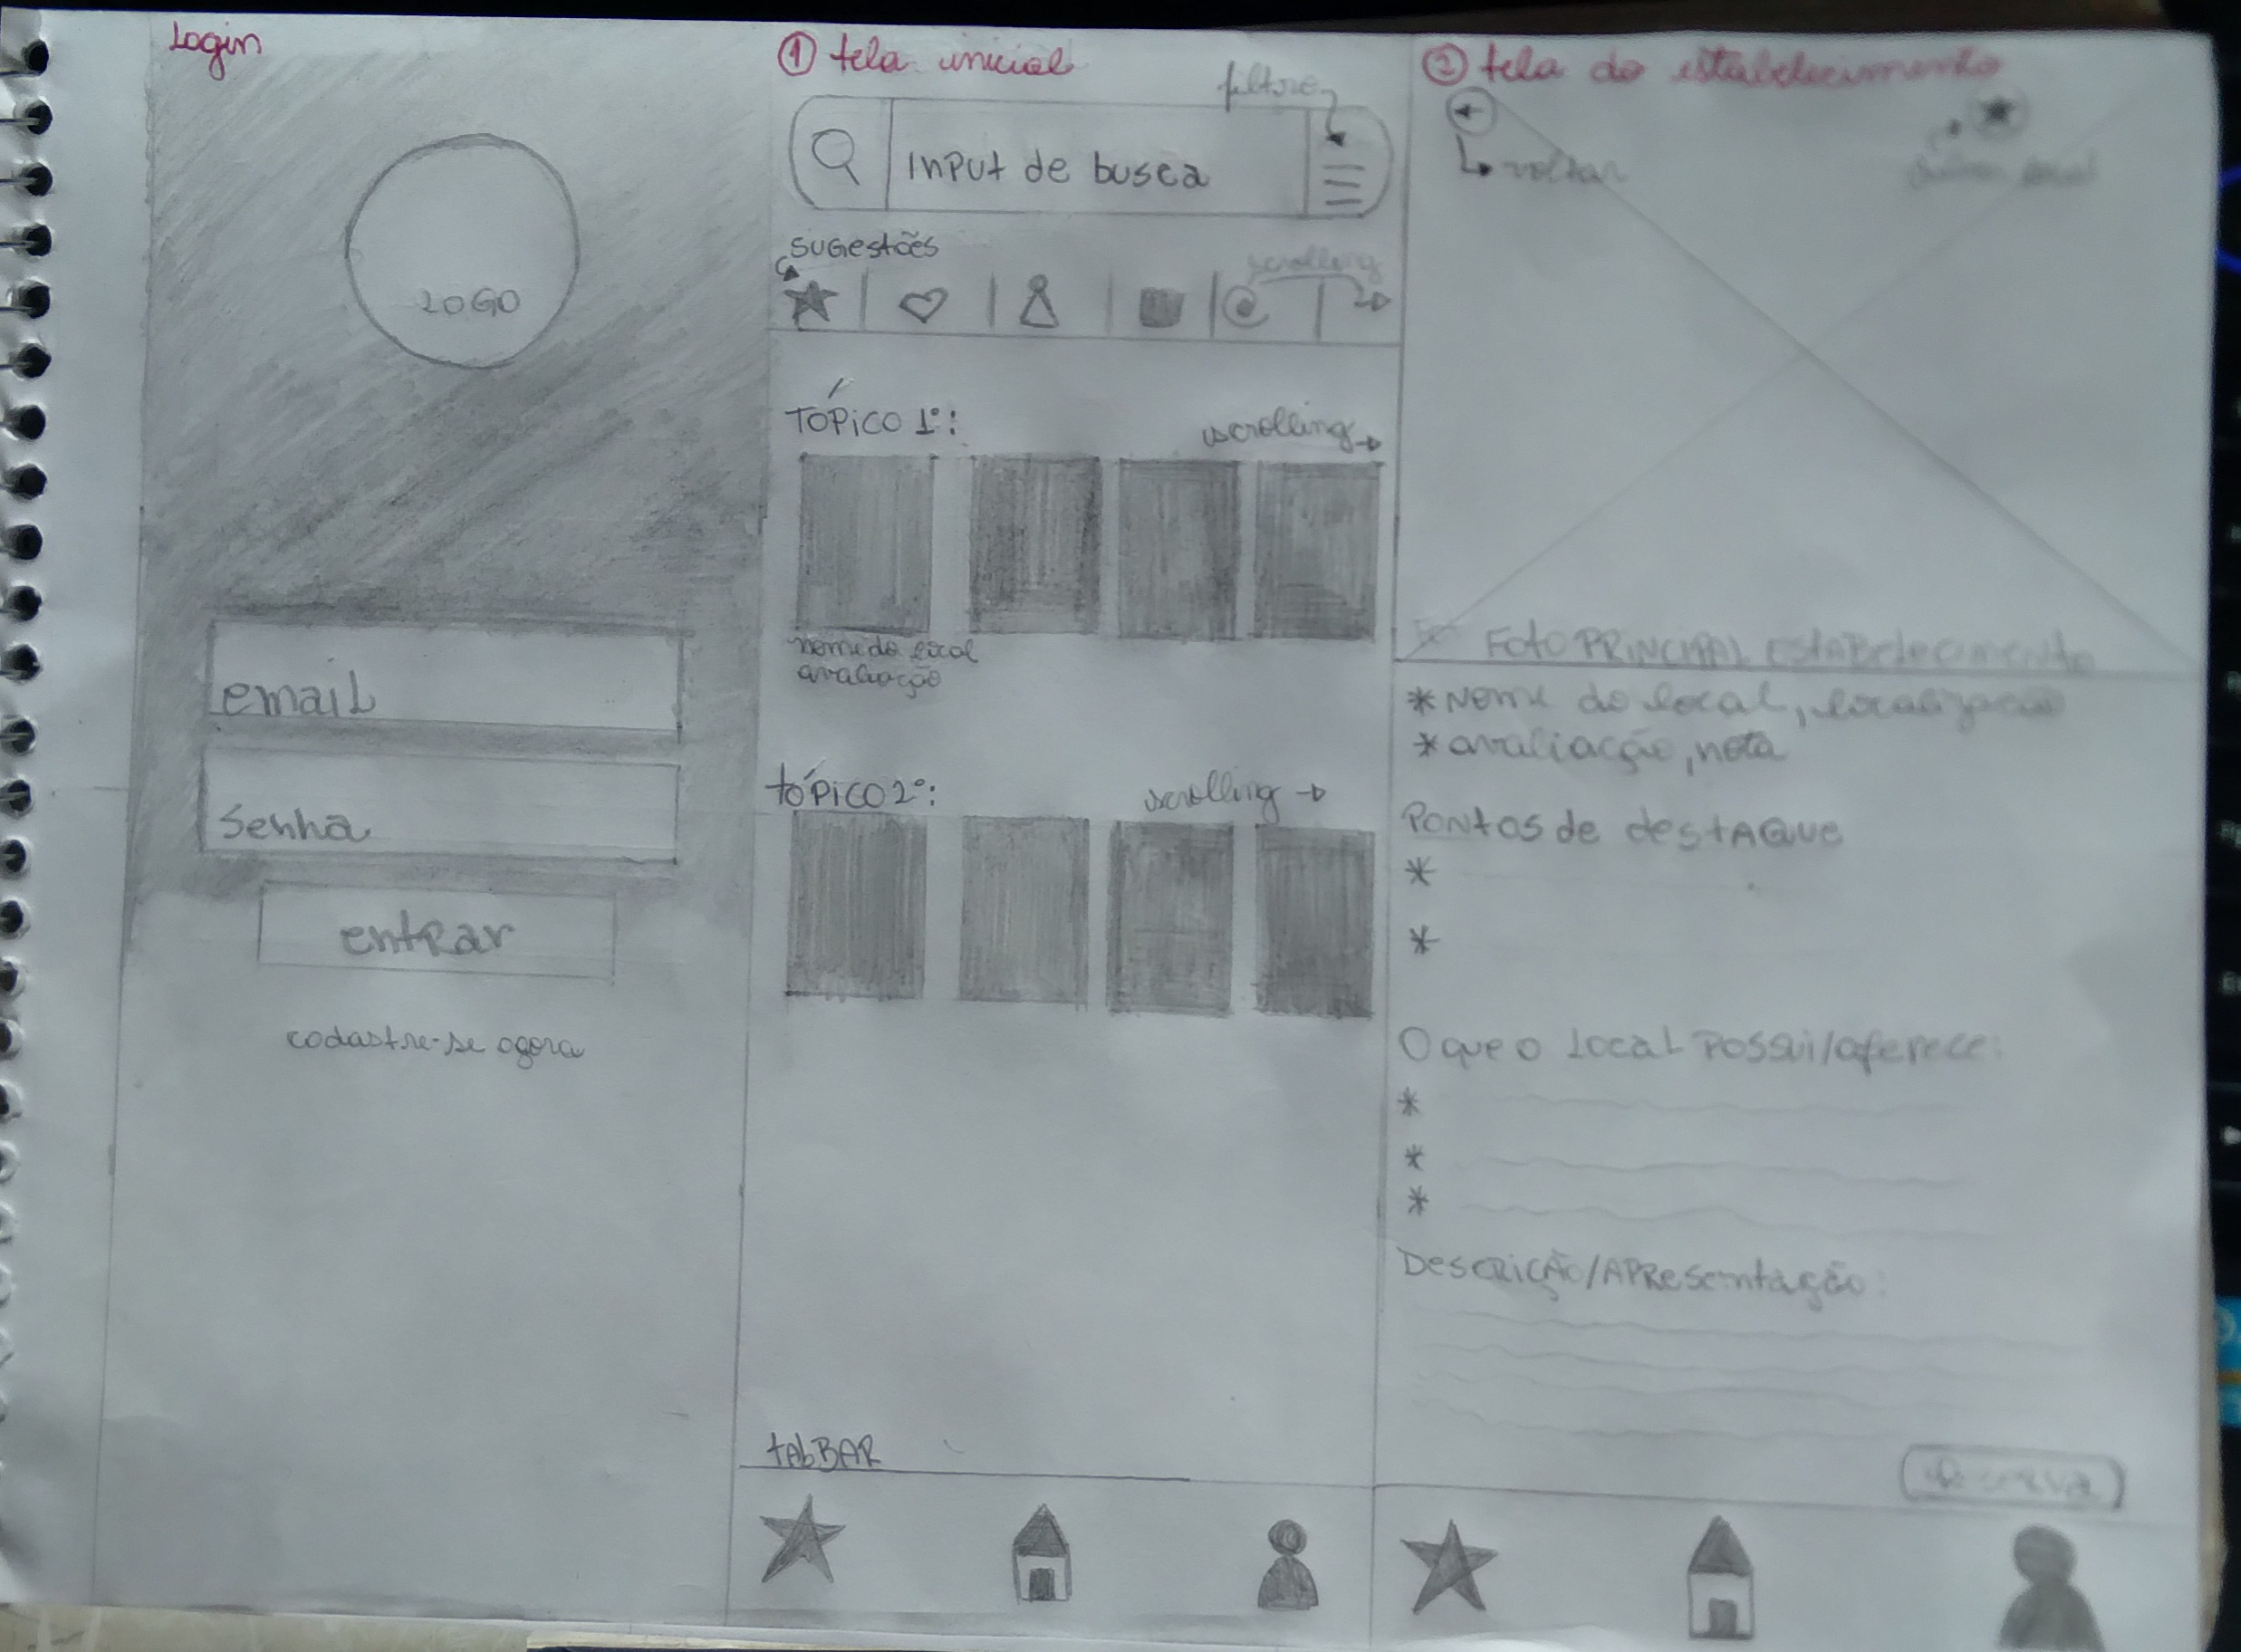 Login
LOGO
email
senha
entrar
cadastre-se agora
① tela inicial
filtro
Input de busca
sugestões
scrolling
TÓPICO 1º:
scrolling
nome do local
avaliação
tÓPICO 2º:
scrolling
tabBAR
② tela do estabelecimento
voltar
FOTO PRINCIPAL EStABelecimento
* Nome do local, localização
* avaliação, nota
PONtOS de destAQue
*
*
O que o local Possui/oferece:
*
*
*
DescRIÇÃO/APResentação:
Reserva